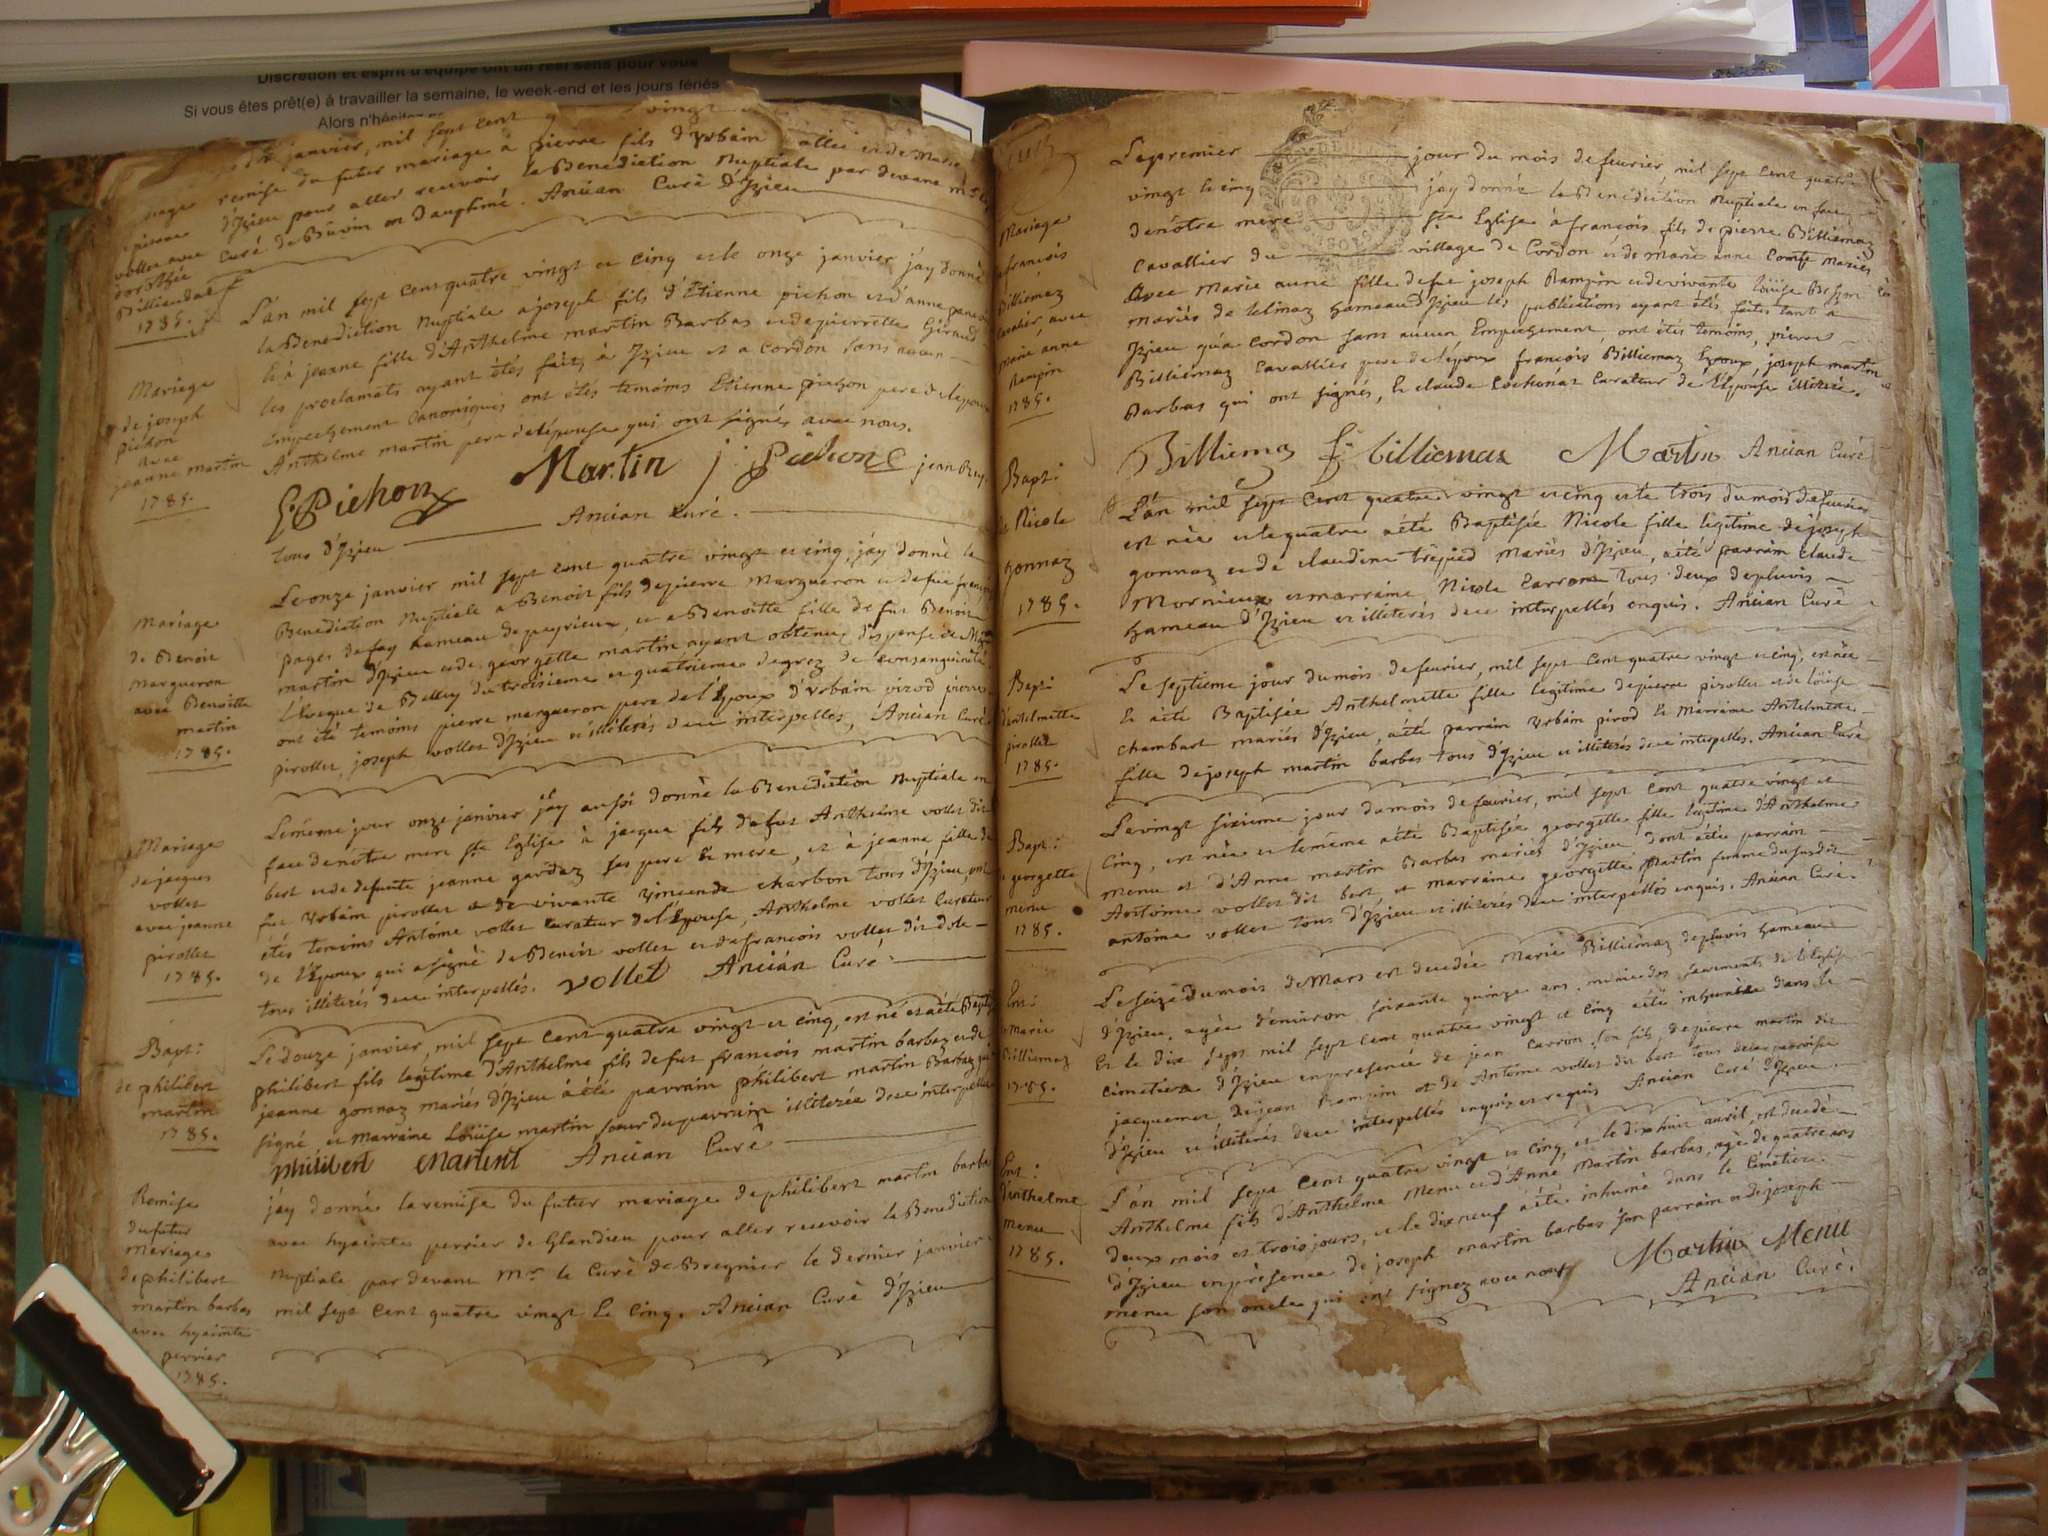 Discrétion et esprit d'équipe ont un réel sens pour vous
Si vous êtes prêt(e) à travailler la semaine, le week-end et les jours fériés
Alors n'hésitez
janvier, mil sept cent vingt
remise du futur mariage à pierre fils d'Urbain vollet et de Marie
d'Izieu pour aller recevoir la Benediction Nuptiale par devant
Curé de Buvin en Dauphiné. Ancian Curé d'Izieu
vollet avec
dorothée
Billiendaz
1785.
Mariage
de joseph
pichon
avec
jeanne martin
1785.
L'an mil sept cent quatre vingt et cinq et le onze janvier jay donné
la Benediction Nuptiale a joseph fils d'Etienne pichon et d'anne
& à jeanne fille d'Anthelme martin Barbas et de pierrette Giraud
les proclamats ayant étés faits à Izieu et a Cordon sans aucun
Empechement Canoniques ont étés temoins Etienne pichon pere de l'epoux
Anthelme martin pere de l'épouse qui ont signés avec nous.
E Pichon Martin j. Pichon jean
tous d'Izieu Ancian Curé.
Mariage
de Benoit
margueron
avec Benoitte
martin
1785.
Le onze janvier mil sept cent quatre vingt et cinq, jay donné la
Benediction Nuptiale a Benoit fils de pierre Margueron et de feüe
pages de fay hameau de peyrieux, et a Benoitte fille de fut Benoit
martin d'Izieu et de georgette martin ayant obtenus dispense de
L'Eveque de Belley du troisieme et quatrieme degrez de consanguinité
ont été temoins pierre margueron pere de l'Epoux d'Urbain pirod pierre
pirollet, joseph vollet d'Izieu et illiterés de ce interpellés, Ancian Curé
Mariage
de jacques
vollet
avec jeanne
pirollet
1785.
Le même jour onze janvier jay aussi donné la Benediction Nuptiale en
face de nôtre mere Ste Eglise à jacque fils de fut Anthelme vollet dit
bert et de defunte jeanne gardaz ses pere & mere, et à jeanne fille de
fut Urbain pirollet et de vivante Vincende charbon tous d'Izieu, ont
étés temoins Antoine vollet curateur de l'Epouse, Anthelme vollet Curateur
de l'Epoux qui a signé de Benoit vollet et de francois vollet dit dole
tous illiterés de ce interpellés. vollet Ancian Curé
Bapt:
de philibert
martin
1785.
Le douze janvier, mil sept cent quatre vingt et cinq, est né et a été Baptisé
philibert fils legitime d'Anthelme fils de fut francois martin barbaz et de
jeanne gonnaz mariés d'Izieu a été parrain philibert martin Barbaz qui
signé et marraine Loüise martin soeur du parrain illiterée de ce interpellée
philibert martin Ancian Curé
Remise
du futur
Mariage
de philibert
martin barbas
avec hyainte
perrier
1785.
jay donné la remise du futur mariage de philibert martin barbas
avec hyainte perrier de Glandieu pour aller recevoir la Benediction
Nuptiale par devant Mr le Curé de Bregnier le dernier janvier
mil sept cent quatre vingt & cinq. Ancian Curé d'Izieu
Mariage
francois
Billiemaz
Cavalier, avec
marie anne
Rampin
1785.
Le premier jour du mois de fevrier, mil sept Cent quatre
vingt & cinq jay donné la Benediction Nuptiale en face
de nôtre mere Ste Eglise à francois fils de pierre Billiemaz
Cavallier du village de Cordon et de marie anne Comte mariés
Avec Marie anne fille de fut joseph Rampin et de vivante Loüise
mariés de hameau d'Izieu les publications ayant étés faites tant à
Izieu qu'a Cordon sans aucun Empechement, ont étés temoins, pierre
Billiemaz Cavallier pere de l'époux francois Billiemaz Epoux, joseph martin
Barbas qui ont signés, & claude Cochonat Curateur de l'Epouse illiteré.
Billiemaz f billiemaz Martin Ancian Curé
Bapt:
de Nicole
gonnaz
1785.
L'an mil sept cent quatre vingt et cinq et le trois du mois de fevrier
est née et le quatre a été Baptisée Nicole fille legitime de joseph
gonnaz et de claudine trépied Mariés d'Izieu, a été parrain claude
Mornieux et marraine Nicole Carron tous deux de pluvis
hameau d'Izieu et illiterés de ce interpellés enquis. Ancian Curé
Bapt:
d'antelmette
pirollet
1785.
Le septieme jour du mois de fevrier, mil sept Cent quatre vingt et cinq, est née
& a été Baptisée Anthelmette fille legitime de pierre pirollet et de Loüise
chambart mariés d'Izieu, a été parrain Urbain pirod & Marraine Antelmette
fille de joseph martin barbas tous d'Izieu et illiterés de ce interpellés. Ancian Curé
Bapt:
georgette
menu
1785.
Le vingt sixieme jour du mois de fevrier, mil sept Cent quatre vingt et
cinq, est née et le même a été Baptisée georgette fille legitime d'Anthelme
menu et d'Anne martin Barbas mariés d'Izieu dont a été parrain
Antoine vollet dit bert, et marraine georgette Martin femme du susdit
antoine vollet tous d'Izieu et illiterés de ce interpellés enquis. Ancian Curé.
Ent:
marie
Billiemaz
1785.
Le seize du mois de Mars est decedée Marie Billiemaz de pluvis hameau
d'Izieu, agée d'environ soixante quinze ans, munie des sacrements de l'Eglise
Et le dix sept mil sept cent quatre vingt et cinq a été inhumée dans le
cimetiere d'Izieu en presence de jean Carron son fils, de pierre martin dit
jacquemet, de jean Rampin et de Antoine vollet dit bert tous de la paroisse
d'Izieu et illiterés de ce interpellés enquis et requis Ancian Curé d'Izieu
Ent:
d'Anthelme
menu
1785.
L'an mil sept Cent quatre vingt et cinq, et le dix huit avril, est decedé
Anthelme fils d'Anthelme Menu et d'Anne Martin barbas, agé de quatre ans
deux mois et trois jours, et le dix neuf a été inhumé dans le Cimetiere
d'Izieu en présence de joseph martin barbas son parrain et de joseph
menu son oncle qui ont signez avec nous Martin Menu
Ancian Curé.